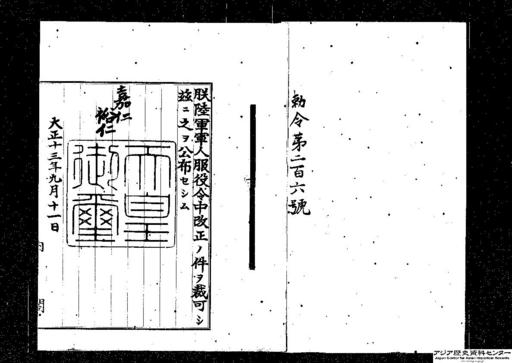 勅令第二百六號
朕陸軍軍人服役令中改正ノ件ヲ裁可シ
茲ニ之ヲ公布セシム
嘉仁
裕仁
天皇
御璽
大正十三年九月十一日
内閣
アジア歴史資料センター
Japan Center for Asian Historical Records